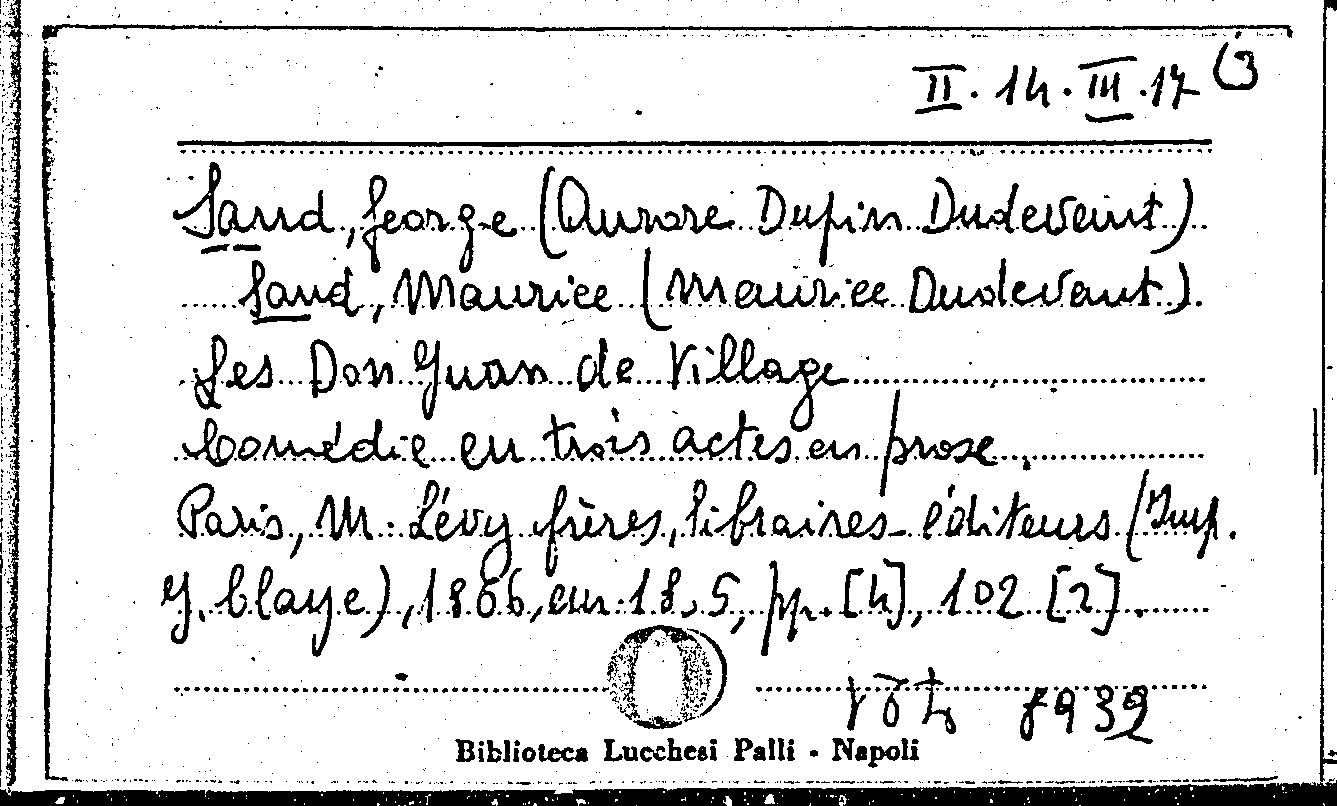 II. 14. III. 17 (3
Sand, George (Aurore Dupin Dudevant)
Sand, Maurice (Maurice Dudevant).
Les Don Juan de Village
Comédie en trois actes en prose.
Paris, M. Lévy frères, libraires-éditeurs (Imp.
J. Claye), 1866, cm. 18,5, pp. [4], 102 [2].
8939
Biblioteca Lucchesi Palli - Napoli